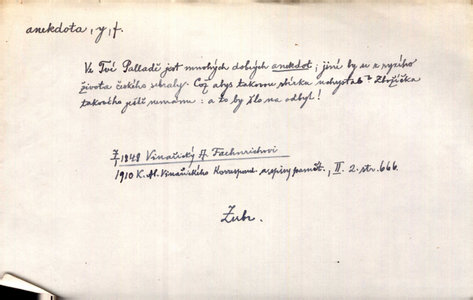 anekdota, y, f.
Ve Tvé Palladě jest mnohých dobrých anekdot; jiné by se z ryzího
života českého sebraly. Což abys takovou sbírku uchystal? Zbožíčka
takového ještě nemáme: a to by šlo na odbyt!
1848 Vinařický A. Fähnrichovi
1910 K. A. Vinařického Korespond. a spisy pamět., II. 2. str. 666.
Zubr.